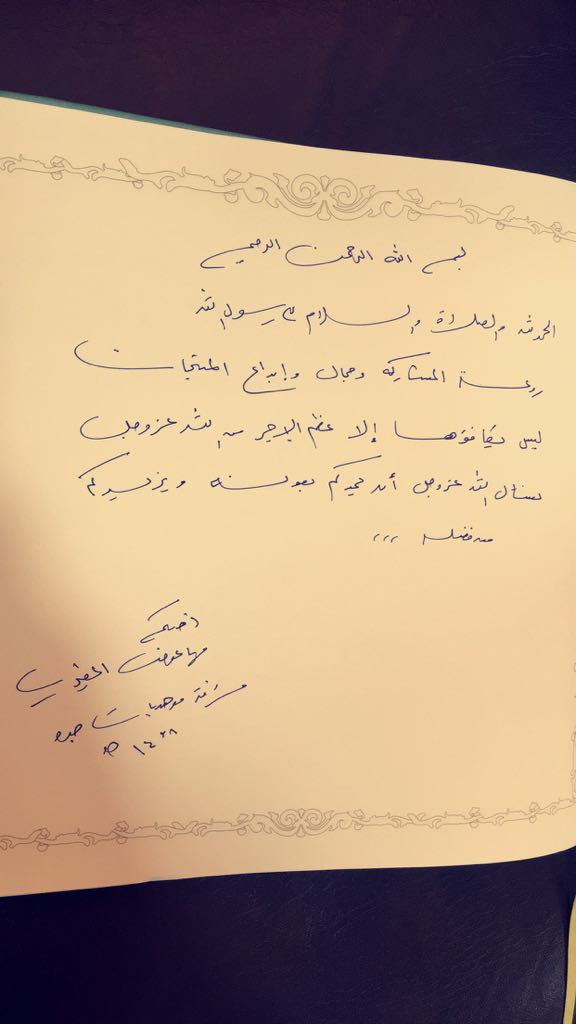 بسم الله الرحمن الرحيم
الحمد لله والصلاة والسلام على رسول الله
روعة المشاركة وجمال وإبداع المنتجات
ليس يكافؤها إلا عظم الأجر من الله عز وجل
نسأل الله عز وجل أن يمدكم بعونه ويزيدكم
من فضله ,,,
أختكم
مها عوض
مشرفة موهوبات جدة
١٤٣٨ هـ